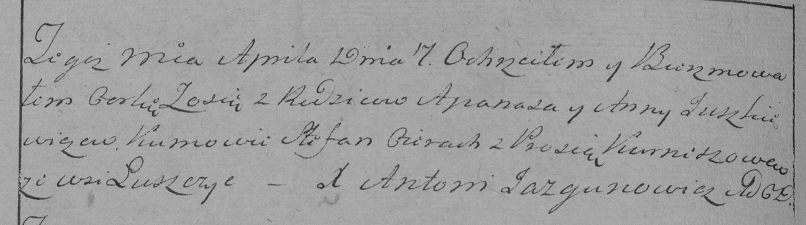 Tegoż Mca Aprila Dnia 17. Ochrzciłem y Bierzmowa
łem Corkę Zosię z Rodzicow Apanasa y Anny Juszkie
wiczow. Kumowie Stefan z Prosią
ze wsi Łuszczyc — X Antoni Jazgunowicz